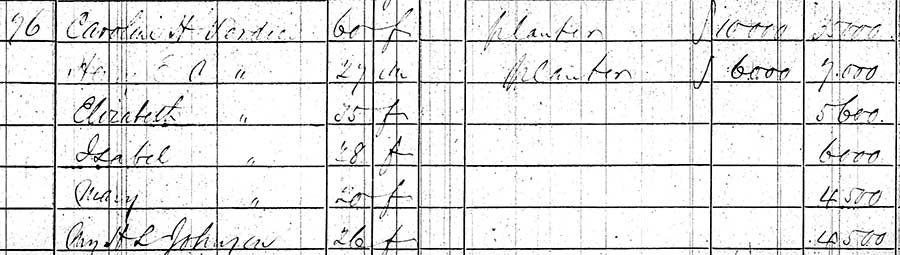 76 Caroline H Hardie 60 f planter 10000 35000
" 27 m planter 6000 7000
Elizabeth " 35 f 5600
Isabel " 28 f 6000
Mary " 20 f 4500
H L Johnson 26 f 4500